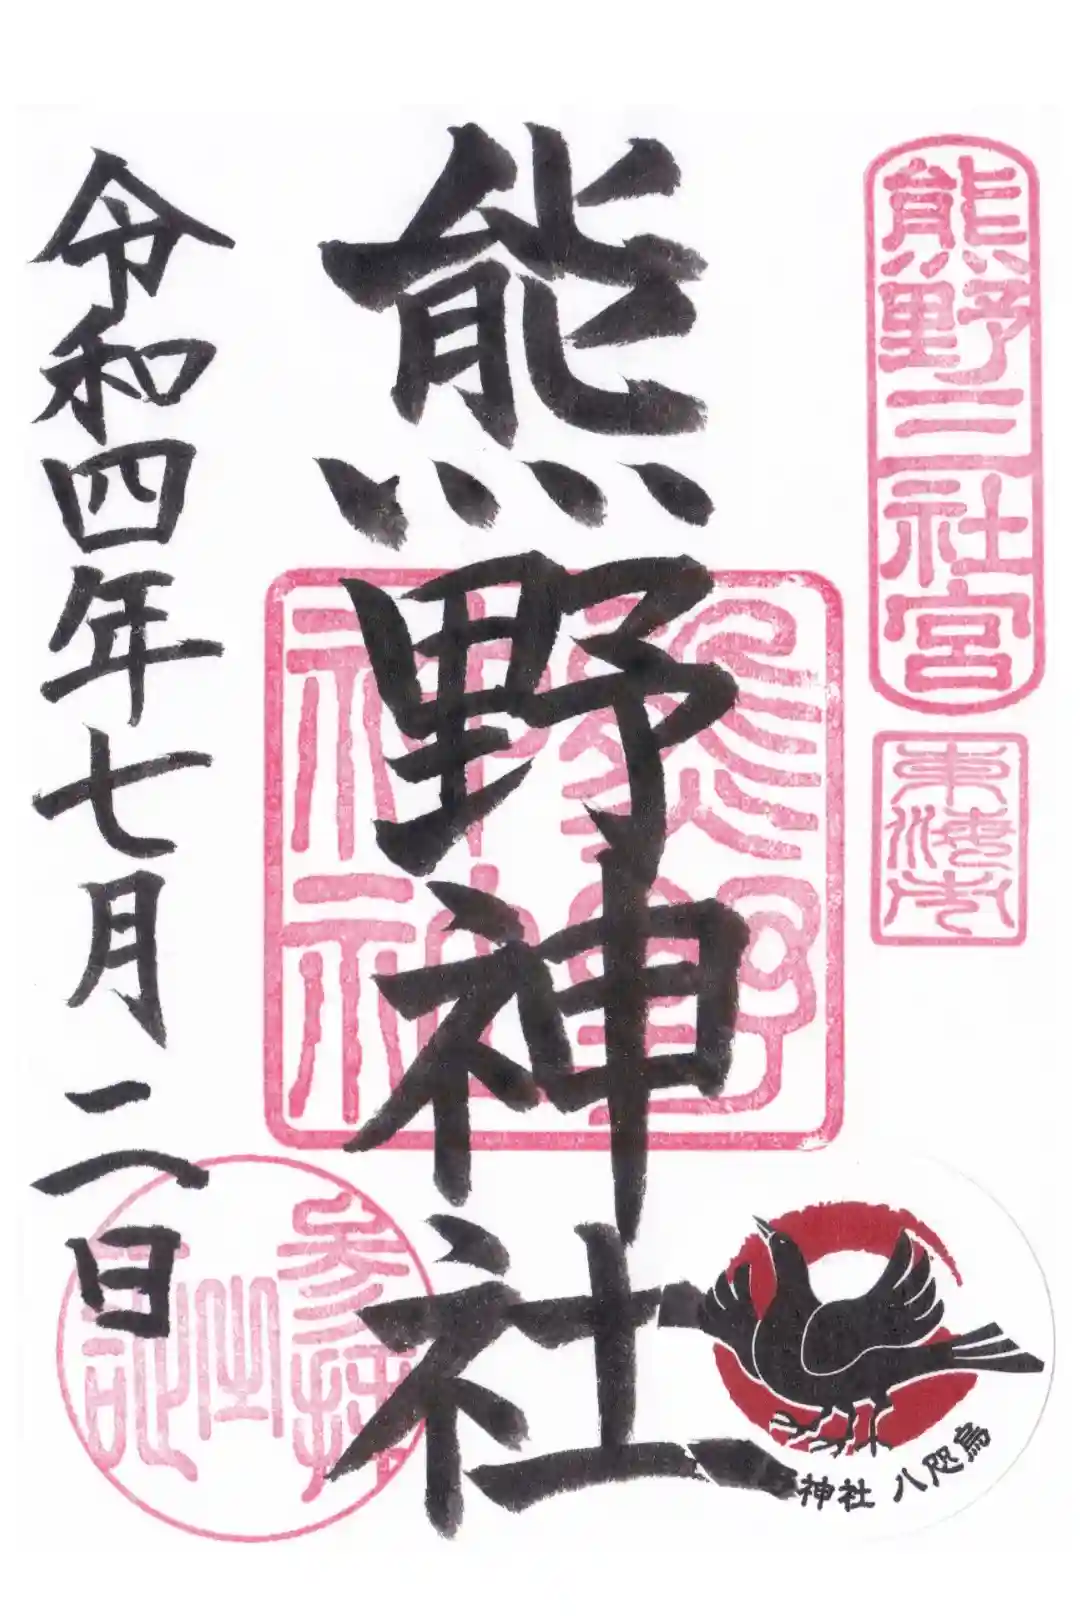 熊野三社宮
東海市
熊野神社
熊野
神社
野神社 八咫烏
令和四年七月二日
参拝
之